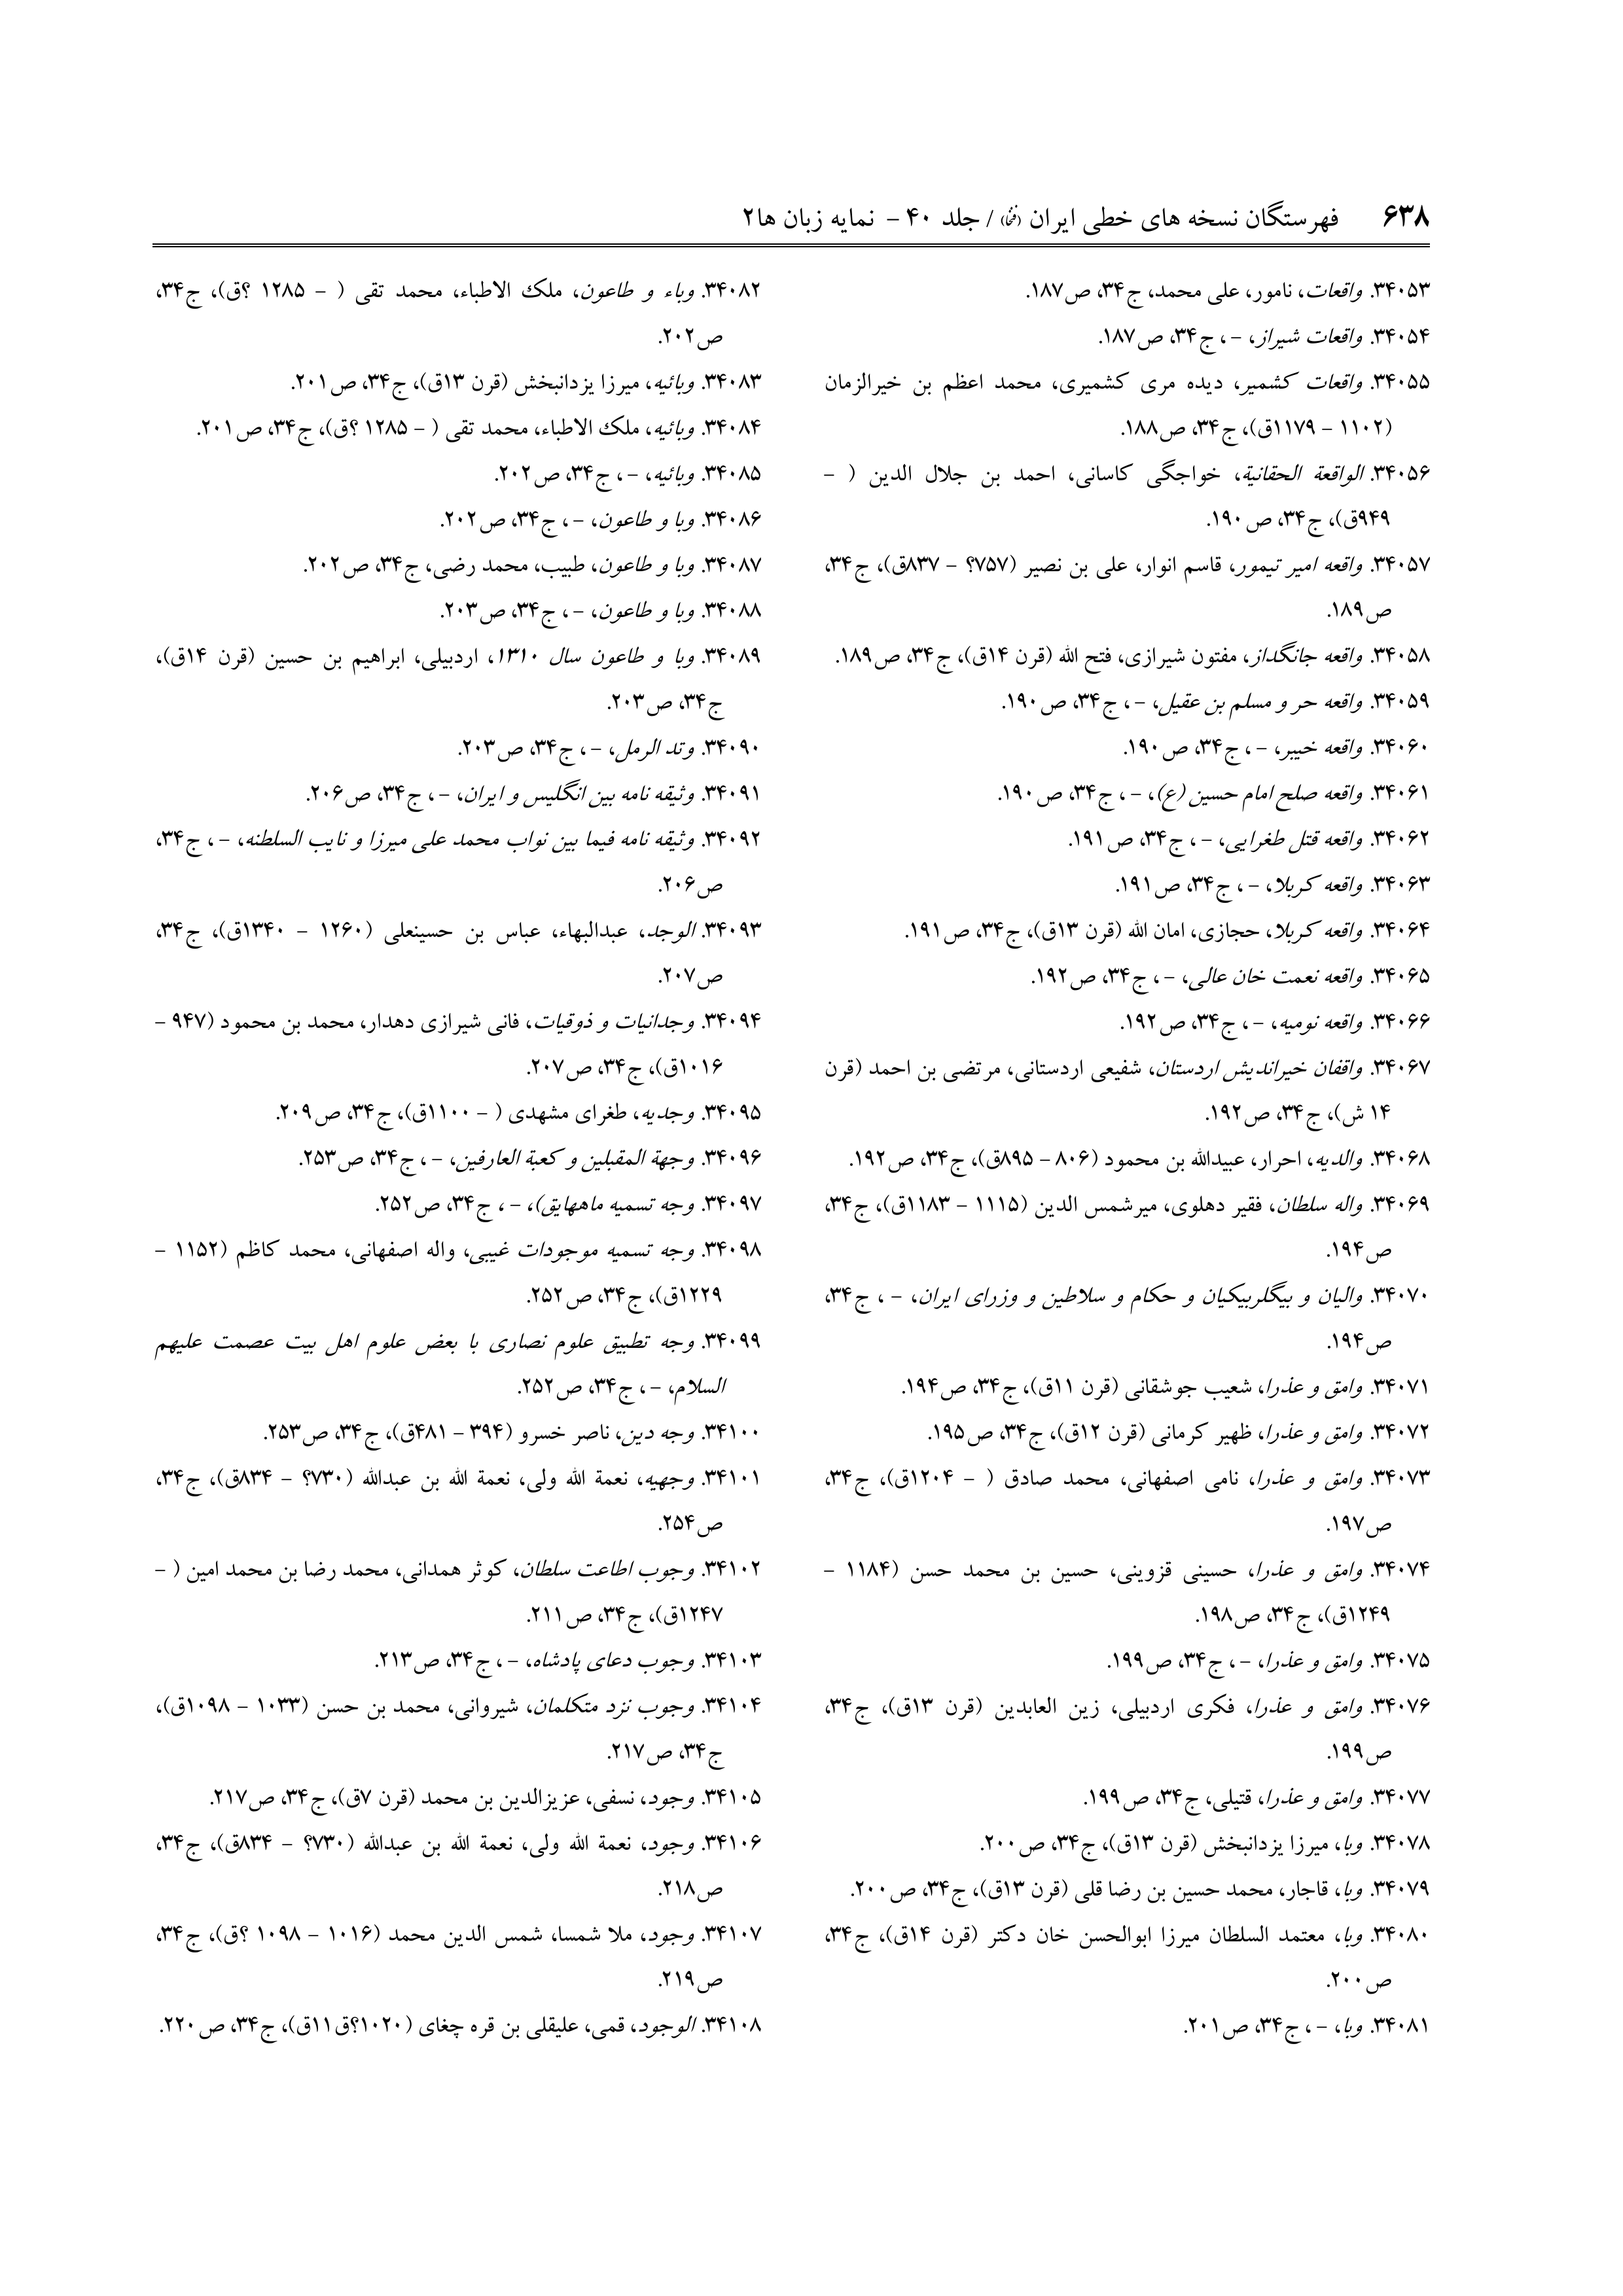 ۶۳۸ فهرستگان نسخه های خطی ایران (فنخا) / جلد ۴۰ - نمایه زبان ها۲
۳۴۰۵۳. واقعات، نامور، علی محمد، ج۳۴، ص۱۸۷.
۳۴۰۵۴. واقعات شیراز، -، ج۳۴، ص۱۸۷.
۳۴۰۵۵. واقعات کشمیر، دیده مری کشمیری، محمد اعظم بن خیرالزمان
(۱۱۰۲ - ۱۱۷۹ق)، ج۳۴، ص۱۸۸.
۳۴۰۵۶. الواقعة الحقانیة، خواجگی کاسانی، احمد بن جلال الدین ( -
۹۴۹ق)، ج۳۴، ص۱۹۰.
۳۴۰۵۷. واقعه امیر تیمور، قاسم انوار، علی بن نصیر (۷۵۷؟ - ۸۳۷ق)، ج۳۴،
ص۱۸۹.
۳۴۰۵۸. واقعه جانگداز، مفتون شیرازی، فتح الله (قرن ۱۴ق)، ج۳۴، ص۱۸۹.
۳۴۰۵۹. واقعه حر و مسلم بن عقیل، -، ج۳۴، ص۱۹۰.
۳۴۰۶۰. واقعه خیبر، -، ج۳۴، ص۱۹۰.
۳۴۰۶۱. واقعه صلح امام حسین (ع)، -، ج۳۴، ص۱۹۰.
۳۴۰۶۲. واقعه قتل طغرایی، -، ج۳۴، ص۱۹۱.
۳۴۰۶۳. واقعه کربلا، -، ج۳۴، ص۱۹۱.
۳۴۰۶۴. واقعه کربلا، حجازی، امان الله (قرن ۱۳ق)، ج۳۴، ص۱۹۱.
۳۴۰۶۵. واقعه نعمت خان عالی، -، ج۳۴، ص۱۹۲.
۳۴۰۶۶. واقعه نومیه، -، ج۳۴، ص۱۹۲.
۳۴۰۶۷. واقفان خیراندیش اردستان، شفیعی اردستانی، مرتضی بن احمد (قرن
۱۴ ش)، ج۳۴، ص۱۹۲.
۳۴۰۶۸. والدیه، احرار، عبیدالله بن محمود (۸۰۶ - ۸۹۵ق)، ج۳۴، ص۱۹۲.
۳۴۰۶۹. واله سلطان، فقیر دهلوی، میرشمس الدین (۱۱۱۵ - ۱۱۸۳ق)، ج۳۴،
ص۱۹۴.
۳۴۰۷۰. والیان و بیگلربیکیان و حکام و سلاطین و وزرای ایران، -، ج۳۴،
ص۱۹۴.
۳۴۰۷۱. وامق و عذرا، شعیب جوشقانی (قرن ۱۱ق)، ج۳۴، ص۱۹۴.
۳۴۰۷۲. وامق و عذرا، ظهیر کرمانی (قرن ۱۲ق)، ج۳۴، ص۱۹۵.
۳۴۰۷۳. وامق و عذرا، نامی اصفهانی، محمد صادق ( - ۱۲۰۴ق)، ج۳۴،
ص۱۹۷.
۳۴۰۷۴. وامق و عذرا، حسینی قزوینی، حسین بن محمد حسن (۱۱۸۴ -
۱۲۴۹ق)، ج۳۴، ص۱۹۸.
۳۴۰۷۵. وامق و عذرا، -، ج۳۴، ص۱۹۹.
۳۴۰۷۶. وامق و عذرا، فکری اردبیلی، زین العابدین (قرن ۱۳ق)، ج۳۴،
ص۱۹۹.
۳۴۰۷۷. وامق و عذرا، قتیلی، ج۳۴، ص۱۹۹.
۳۴۰۷۸. وبا، میرزا یزدانبخش (قرن ۱۳ق)، ج۳۴، ص۲۰۰.
۳۴۰۷۹. وبا، قاجار، محمد حسین بن رضا قلی (قرن ۱۳ق)، ج۳۴، ص۲۰۰.
۳۴۰۸۰. وبا، معتمد السلطان میرزا ابوالحسن خان دکتر (قرن ۱۴ق)، ج۳۴،
ص۲۰۰.
۳۴۰۸۱. وبا، -، ج۳۴، ص۲۰۱.
۳۴۰۸۲. وباء و طاعون، ملک الاطباء، محمد تقی ( - ۱۲۸۵ ؟ق)، ج۳۴،
ص۲۰۲.
۳۴۰۸۳. وبائیه، میرزا یزدانبخش (قرن ۱۳ق)، ج۳۴، ص۲۰۱.
۳۴۰۸۴. وبائیه، ملک الاطباء، محمد تقی ( - ۱۲۸۵ ؟ق)، ج۳۴، ص۲۰۱.
۳۴۰۸۵. وبائیه، -، ج۳۴، ص۲۰۲.
۳۴۰۸۶. وبا و طاعون، -، ج۳۴، ص۲۰۲.
۳۴۰۸۷. وبا و طاعون، طبیب، محمد رضی، ج۳۴، ص۲۰۲.
۳۴۰۸۸. وبا و طاعون، -، ج۳۴، ص۲۰۳.
۳۴۰۸۹. وبا و طاعون سال ۱۳۱۰، اردبیلی، ابراهیم بن حسین (قرن ۱۴ق)،
ج۳۴، ص۲۰۳.
۳۴۰۹۰. وتد الرمل، -، ج۳۴، ص۲۰۳.
۳۴۰۹۱. وثیقه نامه بین انگلیس و ایران، -، ج۳۴، ص۲۰۶.
۳۴۰۹۲. وثیقه نامه فیما بین نواب محمد علی میرزا و نایب السلطنه، -، ج۳۴،
ص۲۰۶.
۳۴۰۹۳. الوجد، عبدالبهاء، عباس بن حسینعلی (۱۲۶۰ - ۱۳۴۰ق)، ج۳۴،
ص۲۰۷.
۳۴۰۹۴. وجدانیات و ذوقیات، فانی شیرازی دهدار، محمد بن محمود (۹۴۷ -
۱۰۱۶ق)، ج۳۴، ص۲۰۷.
۳۴۰۹۵. وجدیه، طغرای مشهدی ( - ۱۱۰۰ق)، ج۳۴، ص۲۰۹.
۳۴۰۹۶. وجهة المقبلین و کعبة العارفین، -، ج۳۴، ص۲۵۳.
۳۴۰۹۷. وجه تسمیه ماههایق)، -، ج۳۴، ص۲۵۲.
۳۴۰۹۸. وجه تسمیه موجودات غیبی، واله اصفهانی، محمد کاظم (۱۱۵۲ -
۱۲۲۹ق)، ج۳۴، ص۲۵۲.
۳۴۰۹۹. وجه تطبیق علوم نصاری با بعض علوم اهل بیت عصمت علیهم
السلام، -، ج۳۴، ص۲۵۲.
۳۴۱۰۰. وجه دین، ناصر خسرو (۳۹۴ - ۴۸۱ق)، ج۳۴، ص۲۵۳.
۳۴۱۰۱. وجهیه، نعمة الله ولی، نعمة الله بن عبدالله (۷۳۰؟ - ۸۳۴ق)، ج۳۴،
ص۲۵۴.
۳۴۱۰۲. وجوب اطاعت سلطان، کوثر همدانی، محمد رضا بن محمد امین ( -
۱۲۴۷ق)، ج۳۴، ص۲۱۱.
۳۴۱۰۳. وجوب دعای پادشاه، -، ج۳۴، ص۲۱۳.
۳۴۱۰۴. وجوب نزد متکلمان، شیروانی، محمد بن حسن (۱۰۳۳ - ۱۰۹۸ق)،
ج۳۴، ص۲۱۷.
۳۴۱۰۵. وجود، نسفی، عزیزالدین بن محمد (قرن ۷ق)، ج۳۴، ص۲۱۷.
۳۴۱۰۶. وجود، نعمة الله ولی، نعمة الله بن عبدالله (۷۳۰؟ - ۸۳۴ق)، ج۳۴،
ص۲۱۸.
۳۴۱۰۷. وجود، ملا شمسا، شمس الدین محمد (۱۰۱۶ - ۱۰۹۸ ؟ق)، ج۳۴،
ص۲۱۹.
۳۴۱۰۸. الوجود، قمی، علیقلی بن قره چغای (۱۰۲۰؟ق۱۱ق)، ج۳۴، ص۲۲۰.